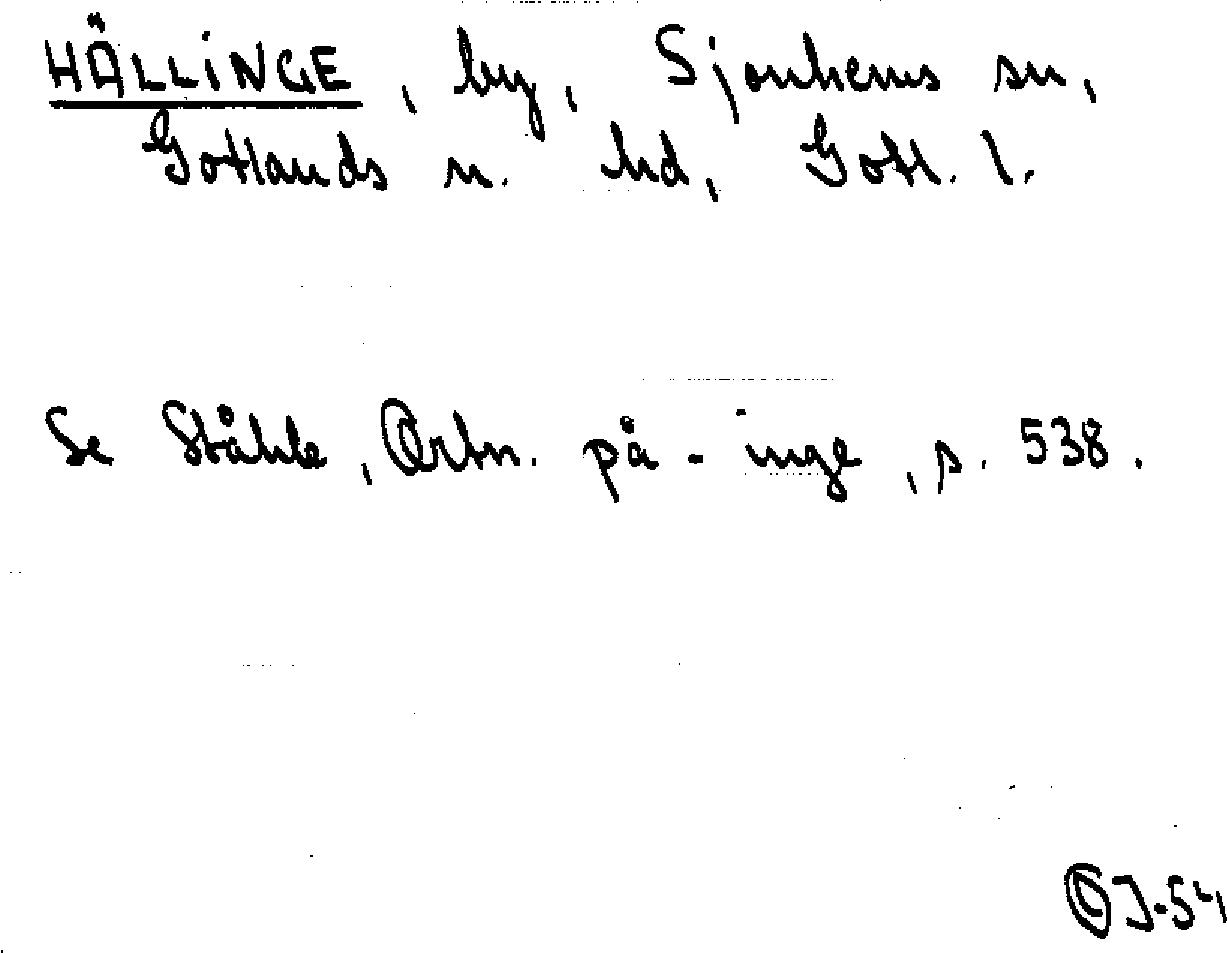 HÄLLINGE, by, Sjonhems sn,
Gotlands n. hd, Gotl. l.
Se Ståhle, Ortn. på -inge, s. 538.
ÖJ-54